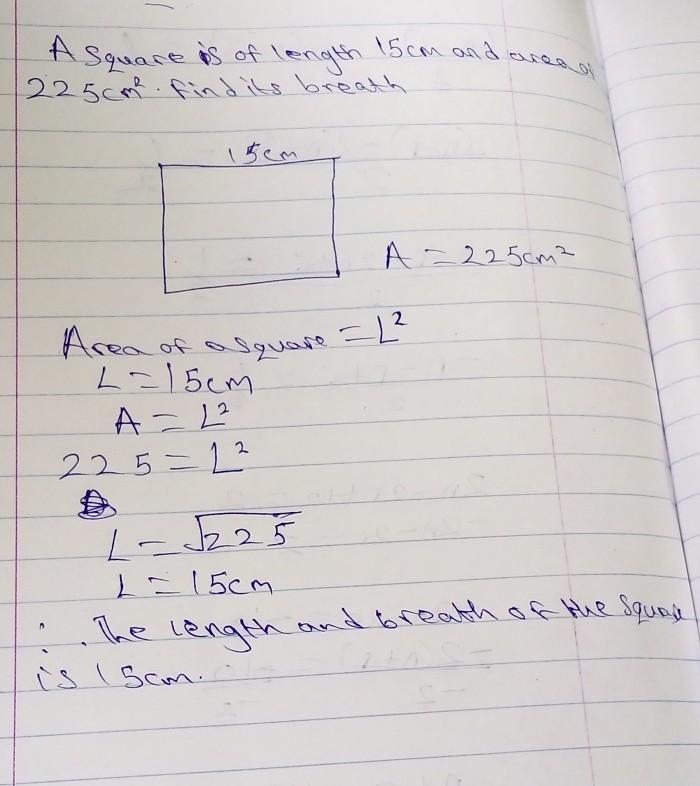 A square is of length 15cm and area of
225cm². find its breath
15cm
A = 225cm²
Area of a square = L²
L = 15cm
A = L²
225 = L²
L = √225
L = 15cm
∴ The length and breath of the square
is 15cm.